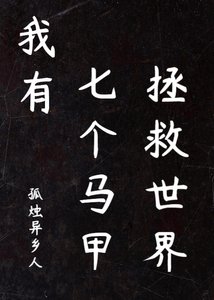 我有
七个马甲
拯救世界
孤烛异乡人